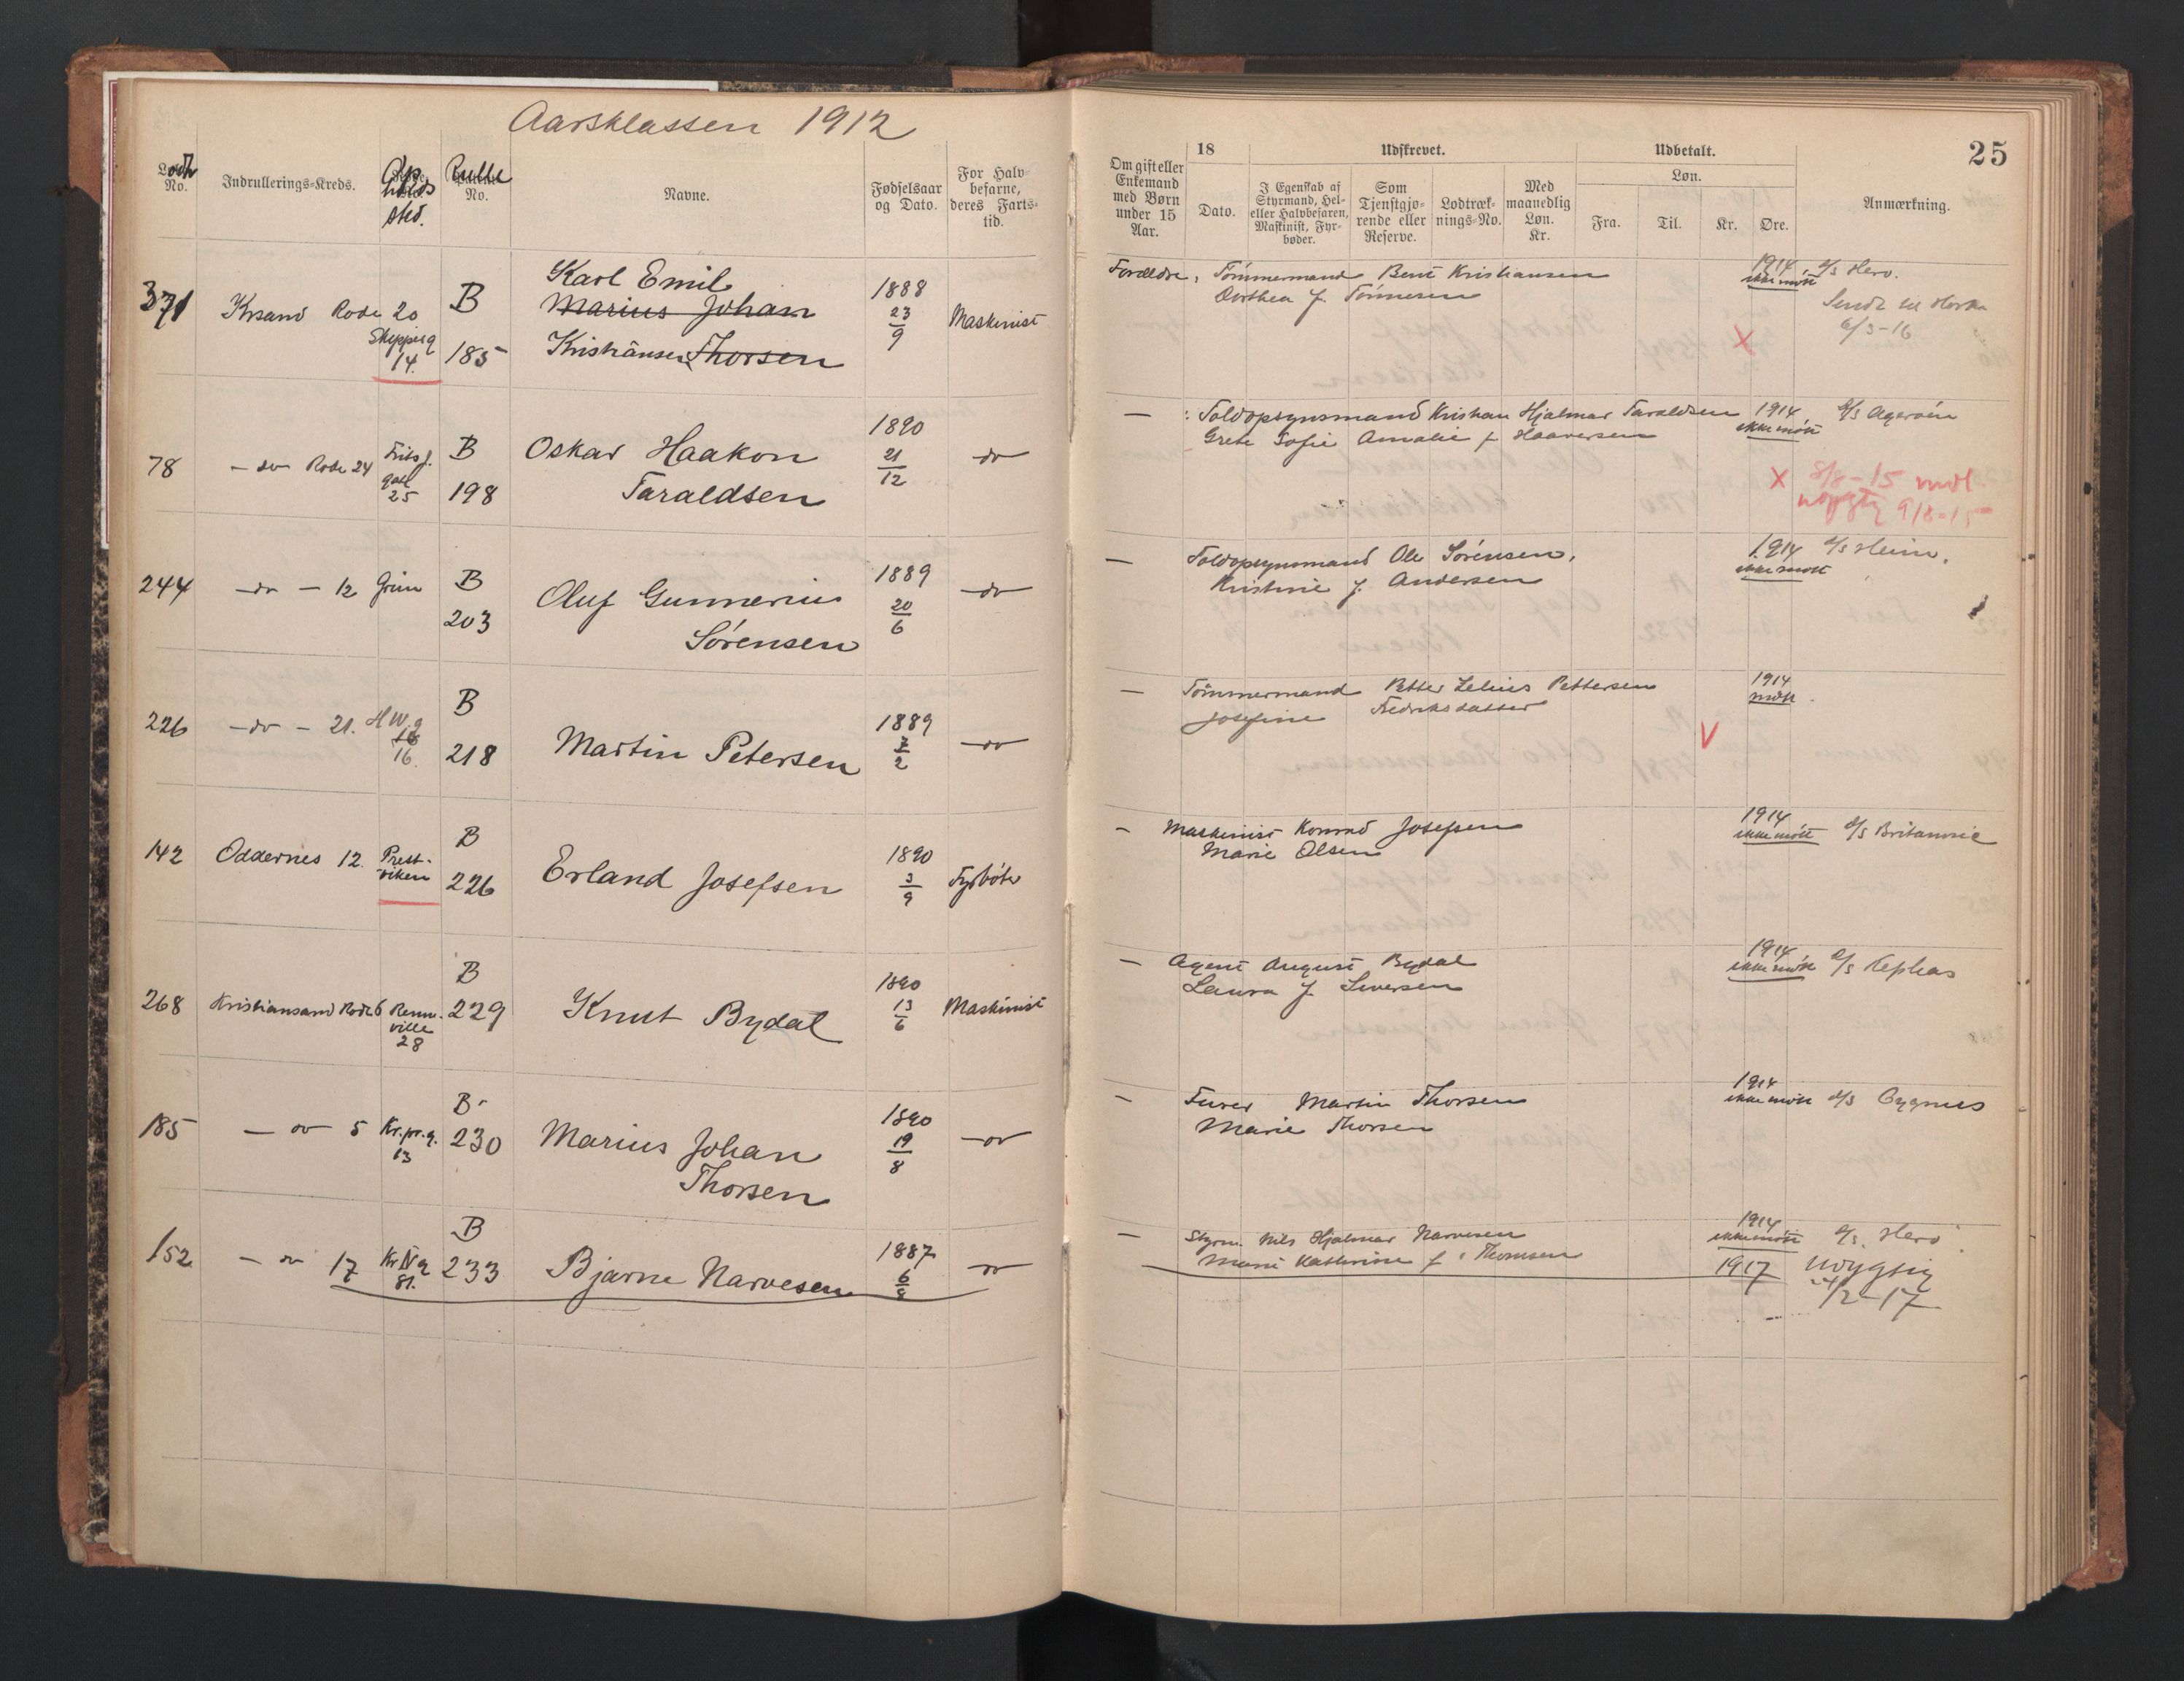 Aarsklassen 1912
25
Lodtr No.
Indrullerings-Kreds.
Opholdssted.
Rulle No.
Navne.
Fødselsaar og Dato.
For Halvbefarne, deres Fartstid.
Om gift eller Enkemand med Børn under 15 Aar.
18
Dato.
Udskrevet.
I Egenskab af Styrmand, Hel- eller Halvbefaren, Maskinist, Fyrbøder.
Som Tjenstgjørende eller Reserve.
Lodtræknings-No.
Med maanedlig Løn. Kr.
Udbetalt.
Løn.
Fra.
Til.
Kr.
Øre.
Anmærkning.
371 Krsand Rode 20
Skipperg
14.
B
185
Karl Emil
Marius Johan
Kristiansen Thorsen
1888
23
9
Maskinist
Forældre, Tømmermand Bent Kristiansen
Dorthea f. Tønnesen
1914
ikke møtt
d/s Hero.
Sendt til
6/3-16
X
78 — do — Rode 24
gate
25
B
198
Oskar Haakon
Taraldsen
1890
21
12
do
— : Toldopsynsmand Kristian Hjalmar Taraldsen
Grete Sofie Amalie f Haaversen
1914
ikke møtt
d/s Agerøen
X 8/8-15 mdt
9/8-15
244 — do — 12 Grim
B
203
Oluf Gunnerius
Sørensen
1889
20
6
— do
— Toldopsynsmand Ole Sørensen,
Kristine f. Andersen
1914
ikke møtt
d/s Heim.
226 — do — 21. H W. g
16.
B
218
Martin Petersen
1889
7
2
— do
— Tømmermand Petter Pettersen
Josefine Fredriksdatter
1914
møtt.
V
142 Oddernes 12. Prestviken
B
226
Erland Josefsen
1890
3
9
Fyrbøter
— Maskinist Konrad Josefsen
Marie Olsen
1914
ikke møtt
d/s Britannic
268 Kristiansand Rode 6 Rennville
28
B
229
Knut Bydal
1890
13
6
Maskinist
— Agent August Bydal
Laura f Siversen
1914
ikke møtt
d/s Kephas
185 — do 5 Kr.pr.g.
13
B
230
Marius Johan
Thorsen
1890
19
8
— do
— Furer Martin Thorsen
Marie Thorsen
1914
ikke møtt
d/s Cygnus
152 — do 17 Kr IV g
81.
B
233
Bjarne Narvesen
1887
6
8
do
— Styrm. Nils Hjalmar Narvesen
Marie Kathrine f. Thomsen
1914
ikke møtt
d/s. Hero
1917 Udygtig
24/2-17